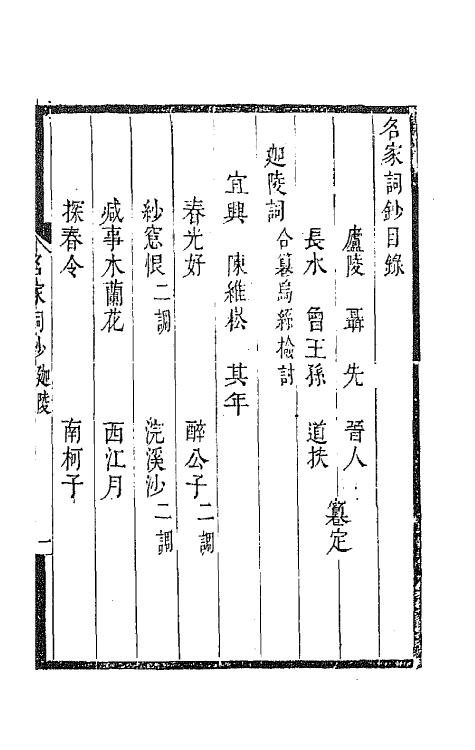 名家詞鈔目錄
廬陵 聶先 晉人
長水 曾王孫 道扶
篹定
迦陵詞 合篹烏絲檢討
宜興 陳維崧 其年
春光好 醉公子二調
紗窓恨二調 浣溪沙二調
減字木蘭花 西江月
探春令 南柯子
名家詞鈔 迦陵 一